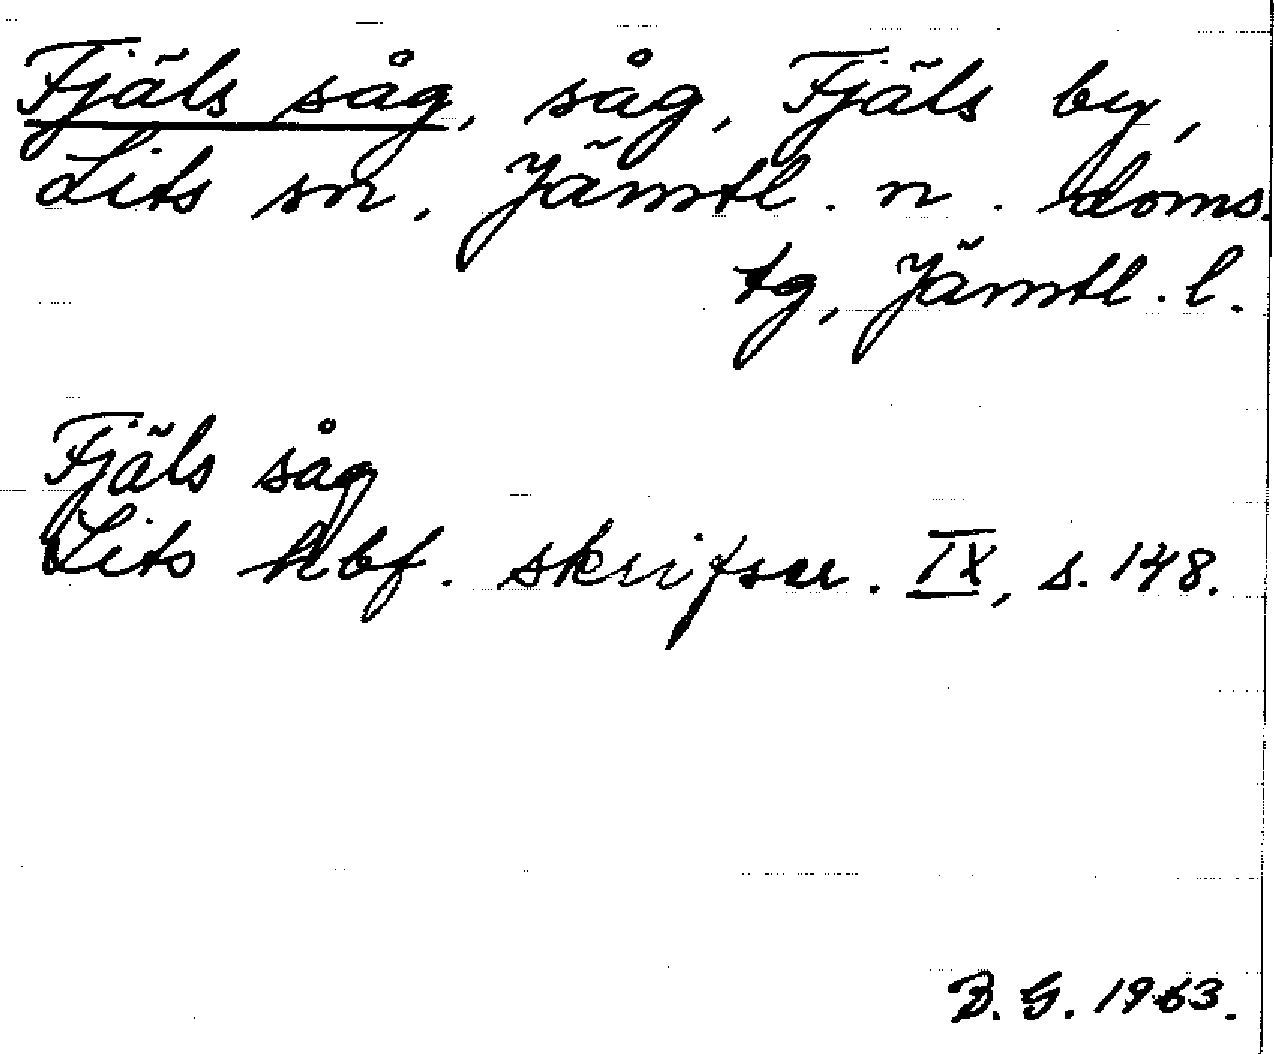 Fjäls såg, såg, Fjäls by,
Lits sn, Jämtl. n. doms.
tg, Jämtl. l.
Fjäls såg
Lits hbf. skriftser. IX, s. 148.
B. G. 1963.